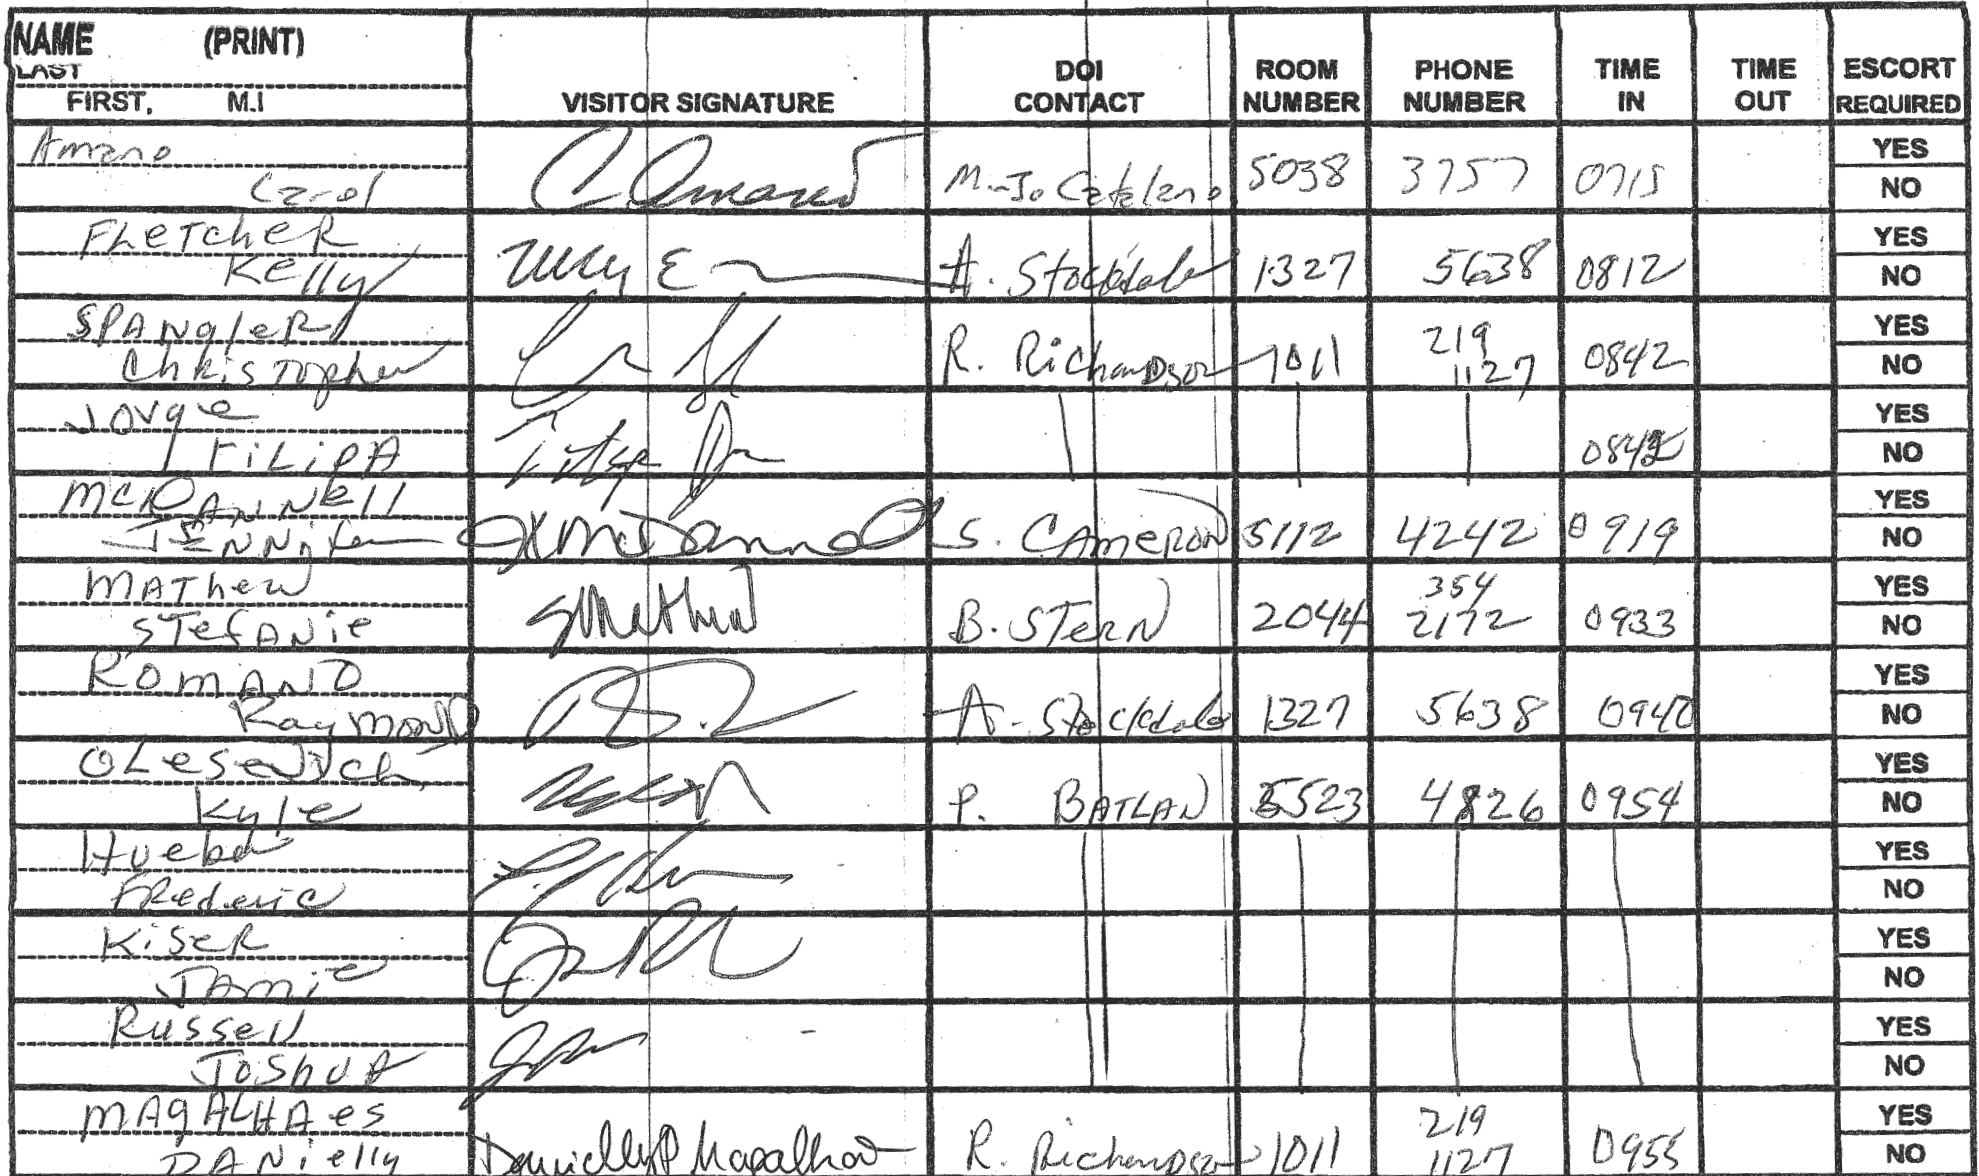 NAME (PRINT)
LAST
FIRST, M.I
VISITOR SIGNATURE
DOI CONTACT
ROOM NUMBER
PHONE NUMBER
TIME IN
TIME OUT
ESCORT REQUIRED
Amano
Carol
M-Jo Catalano 5038 3757 0715
YES
NO
FLeTcheR
Kelly
A. Stockdale 1327 5638 0812
YES
NO
SPANgleR
ChRisTopher
R. RichaRDson 1011 219 1127 0842
YES
NO
Jorge
FiLipA
0842
YES
NO
McDANNell
JeNNifer
S. CAMERON 5112 4242 0919
YES
NO
MATHew
STefANie
B. STERN 2044 354 2172 0933
YES
NO
ROMANO
RayMOND
A. Stockdale 1327 5638 0940
YES
NO
OLesewich
Kyle
P. BATLAN 5523 4826 0954
YES
NO
FRederic
YES
NO
KiSeR
JAMie
YES
NO
Russell
JoShuA
YES
NO
MAgALHAes
DANielly
R. RichaRDson 1011 219 1127 0955
YES
NO